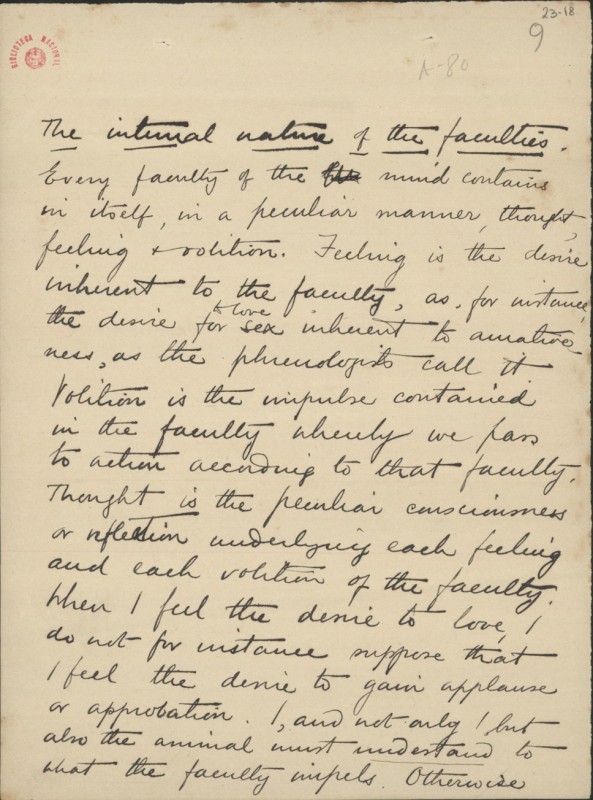 23-18
9
BIBLIOTECA NACIONAL
A-80
The internal nature of the faculties.
Every faculty of the mind contains
in itself, in a peculiar manner, thought,
feeling & volition. Feeling is the desire
inherent to the faculty, as, for instance,
to love
the desire for sex inherent to amative-
ness, as the phrenologists call it
Volition is the impulse contained
in the faculty whereby we pass
to action according to that faculty.
Thought is the peculiar consciousness
or reflection underlying each feeling
and each volition of the faculty.
When I feel the desire to love, I
do not for instance suppose that
I feel the desire to gain applause
or approbation. I, and not only I but
also the animal must understand to
what the faculty impels. Otherwise